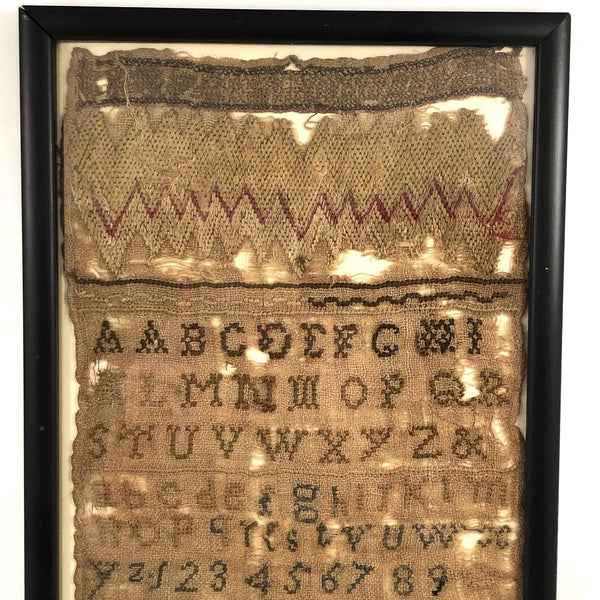 A A B C D E F G H I
K L M N M O P Q R
S T U V W X Y Z &
a b c d e f g h i k l m
n o p q r s t v u w x
y z 1 2 3 4 5 6 7 8 9